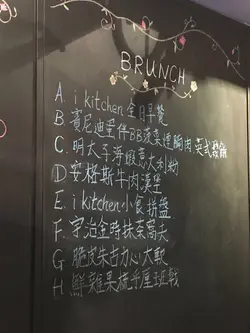 BRUNCH
A. i kitchen 全日早餐
B. 賓尼迪蛋伴BB菠菜進胸肉.英式鬆餅
C. 明太子海蝦意大利粉
D 安格斯牛肉漢堡
E. i kitchen小食拼盤
F. 宇治金時抹茶窩夫
G 脆皮朱古力心太軟
H 鮮雜果梳乎厘班戟